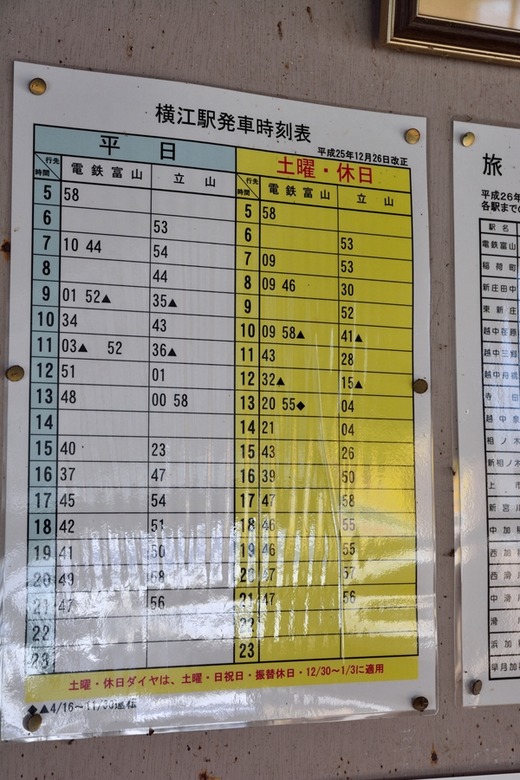 横江駅発車時刻表
平成25年12月26日改正
平日 土曜・休日
行先 時間 電鉄富山 立山 行先 時間 電鉄富山 立山
5 58 5 58
6 53 6 53
7 10 44 54 7 09 53
8 44 8 09 46 30
9 01 52▲ 35▲ 9 52
10 34 43 10 09 58▲ 41▲
11 03▲ 52 36▲ 11 43 28
12 51 01 12 32▲ 15▲
13 48 00 58 13 20 55◆ 04
14 14 21 04
15 40 23 15 43 26
16 37 47 16 39 50
17 45 54 17 47 58
18 42 51 18 46 55
19 41 50 19 46 55
20 49 58 20 47 57
21 47 56 21 47 56
22 22
23 23
土曜・休日ダイヤは、土曜・日祝日・振替休日・12/30～1/3に適用
◆▲4/16～11/30運転
旅
平成26年
各駅までの
駅名
電鉄富山
稲荷町
新庄田中
東新庄
越中荏原
越中三郷
越中舟橋
寺田
越中泉
相ノ木
新相ノ木
上市
新宮川
中加積
西加積
西滑川
中滑川
滑
浜加積
早月加積